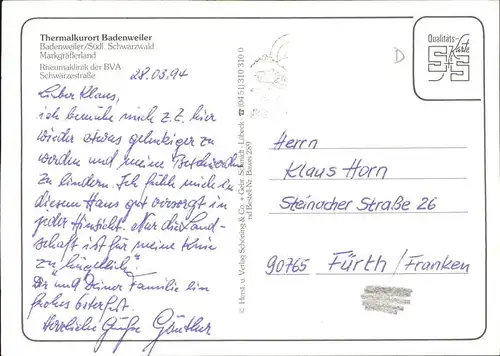 Thermalkurort Badenweiler
Badenweiler/Südl. Schwarzwald
Markgräflerland
Rheumaklinik der BVA
Schwärzestraße
28.03.94
Lieber Klaus,
ich bemühe mich z.Z. hier
wieder etwas gelenkiger zu
werden und meine Beschwerden
zu lindern. Ich fühle mich in
diesem Haus gut versorgt in
jeder Hinsicht. Nur die Land-
schaft ist für meine Knie
zu "hügelich".
Dir und Deiner Familie ein
frohes Osterfest.
Herzliche Grüße Günther
© Herst. u. Verlag Schöning & Co + Gebr. Schmidt · Lübeck · ☎ (04 51) 310 310 0
Qualitäts-
Karte
S+S
D
Herrn
Klaus Horn
Steinacher Straße 26
90765 Fürth/Franken